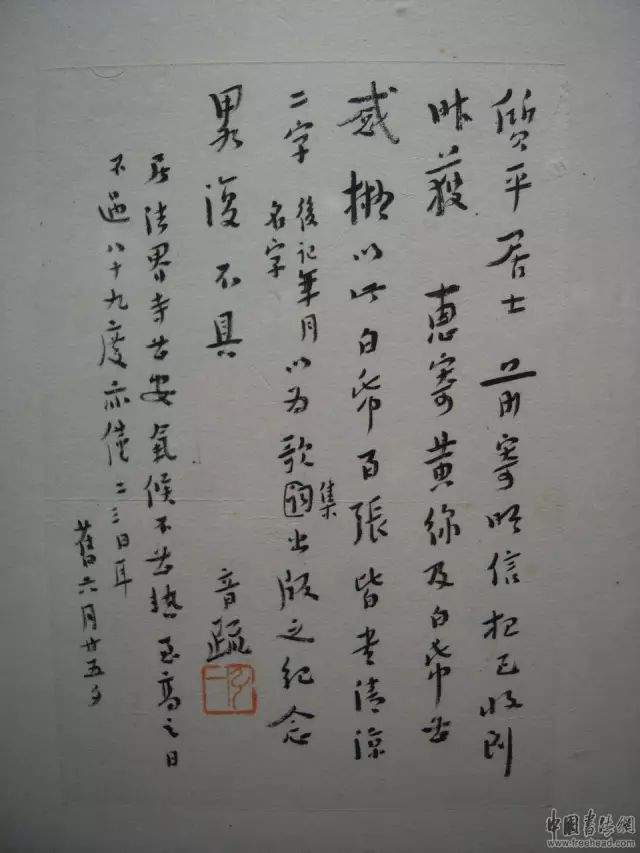 質平居士 前寄明信想已收到
昨獲 惠寄黃線及白紙甚
感擬以此白紙百張皆書清涼
二字後記年月名字以為歌集出版之紀念
畧復不具 音疏
居法界寺甚安氣候不甚熱至高之日
不過八十九度亦僅二三日耳
舊六月廿五日
中國書法網
www.freehead.com